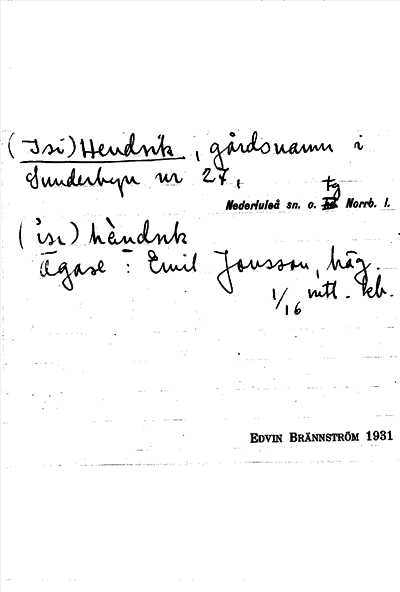 (Isi) Hendrik, gårdsnamn i
Sunderbyn nr 27,
tg
Nederluleå sn. o. Norrb. l.
('isi) hèndrik
Ägare: Emil Jonsson, häg.
1/16 mtl. kb.
EDVIN BRÄNNSTRÖM 1931